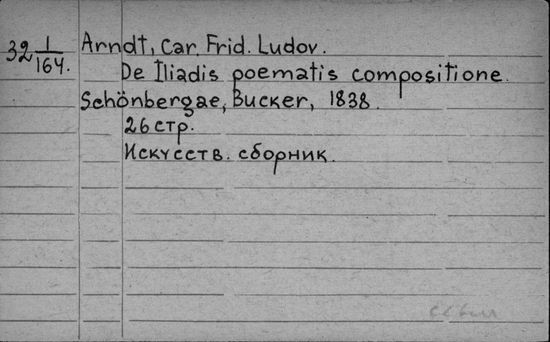 32 1/164. Arndt, Car. Frid. Ludov.
De Iliadis poematis compositione.
Schönbergae, Bucker, 1838.
26 стр.
Искусств. сборник.